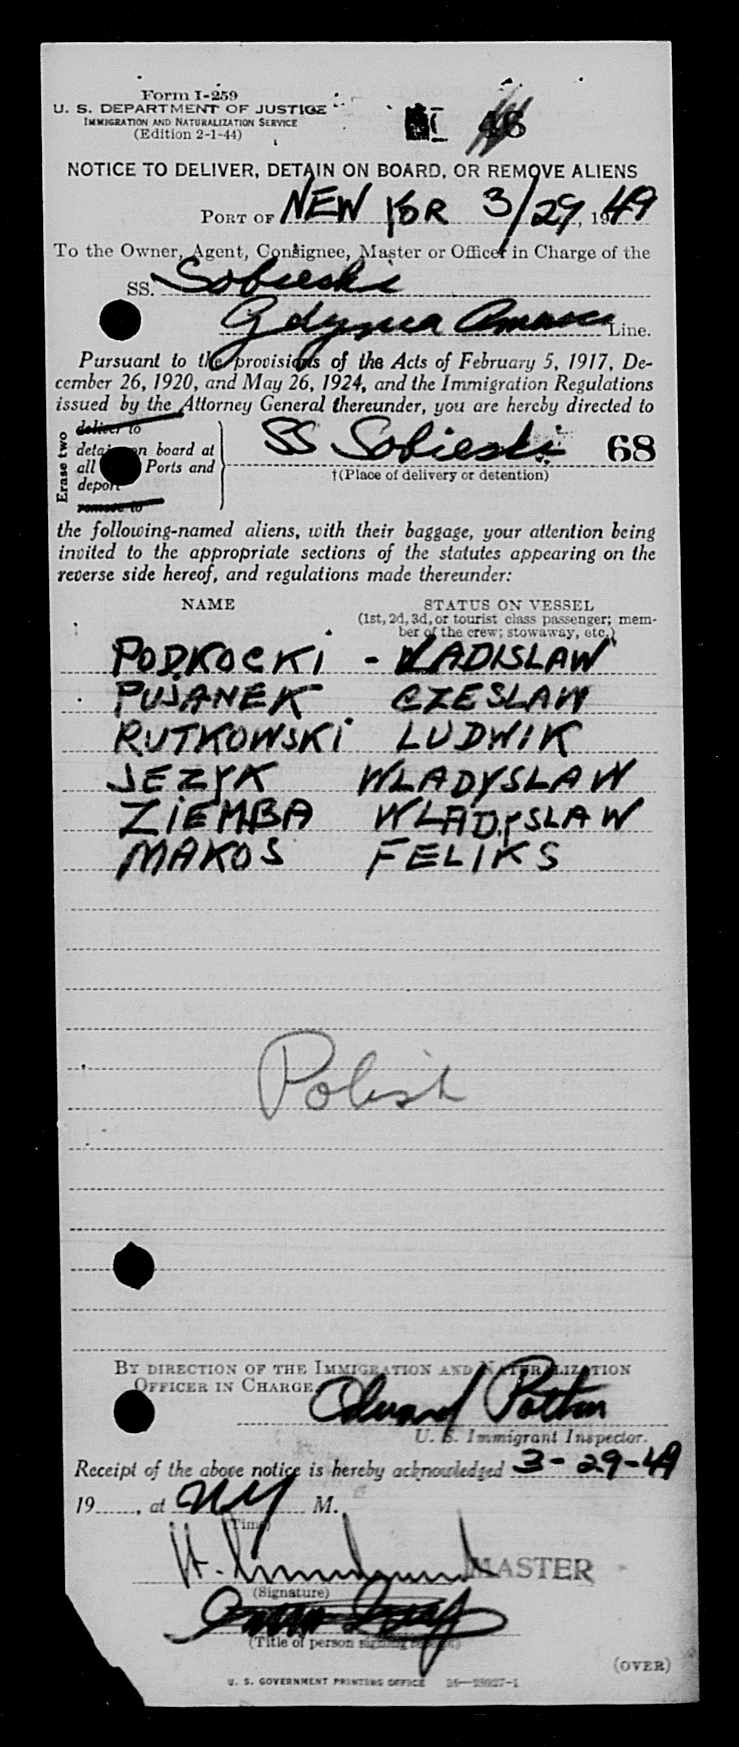 Form I-259
U. S. DEPARTMENT OF JUSTICE
IMMIGRATION AND NATURALIZATION SERVICE
(Edition 2-1-44)
NOTICE TO DELIVER, DETAIN ON BOARD, OR REMOVE ALIENS
PORT OF NEW YOR 3/29, 1949
To the Owner, Agent, Consignee, Master or Officer in Charge of the
SS. Sobieski
Gdynia Line.
Pursuant to the provisions of the Acts of February 5, 1917, De-
cember 26, 1920, and May 26, 1924, and the Immigration Regulations
issued by the Attorney General thereunder, you are hereby directed to
Erase two
deliver to
detain on board at
all Ports and
deport
remove to
SS Sobieski 68
†(Place of delivery or detention)
the following-named aliens, with their baggage, your attention being
invited to the appropriate sections of the statutes appearing on the
reverse side hereof, and regulations made thereunder:
NAME STATUS ON VESSEL
(1st, 2d, 3d, or tourist class passenger; mem-
ber of the crew; stowaway, etc.)
PODKOCKI - WLADISLAW
PUJANEK CZESLAW
RUTKOWSKI LUDWIK
JEZYK WLADYSLAW
ZIEMBA WLADYSLAW
MAKOS FELIKS
Polish
BY DIRECTION OF THE IMMIGRATION AND NATURALIZATION
OFFICER IN CHARGE,
Edward
U. S. Immigrant Inspector.
Receipt of the above notice is hereby acknowledged 3-29-49
19......, at NY M.
(Time)
H. MASTER
(Signature)
(Title of person signing receipt)
(OVER)
U. S. GOVERNMENT PRINTING OFFICE